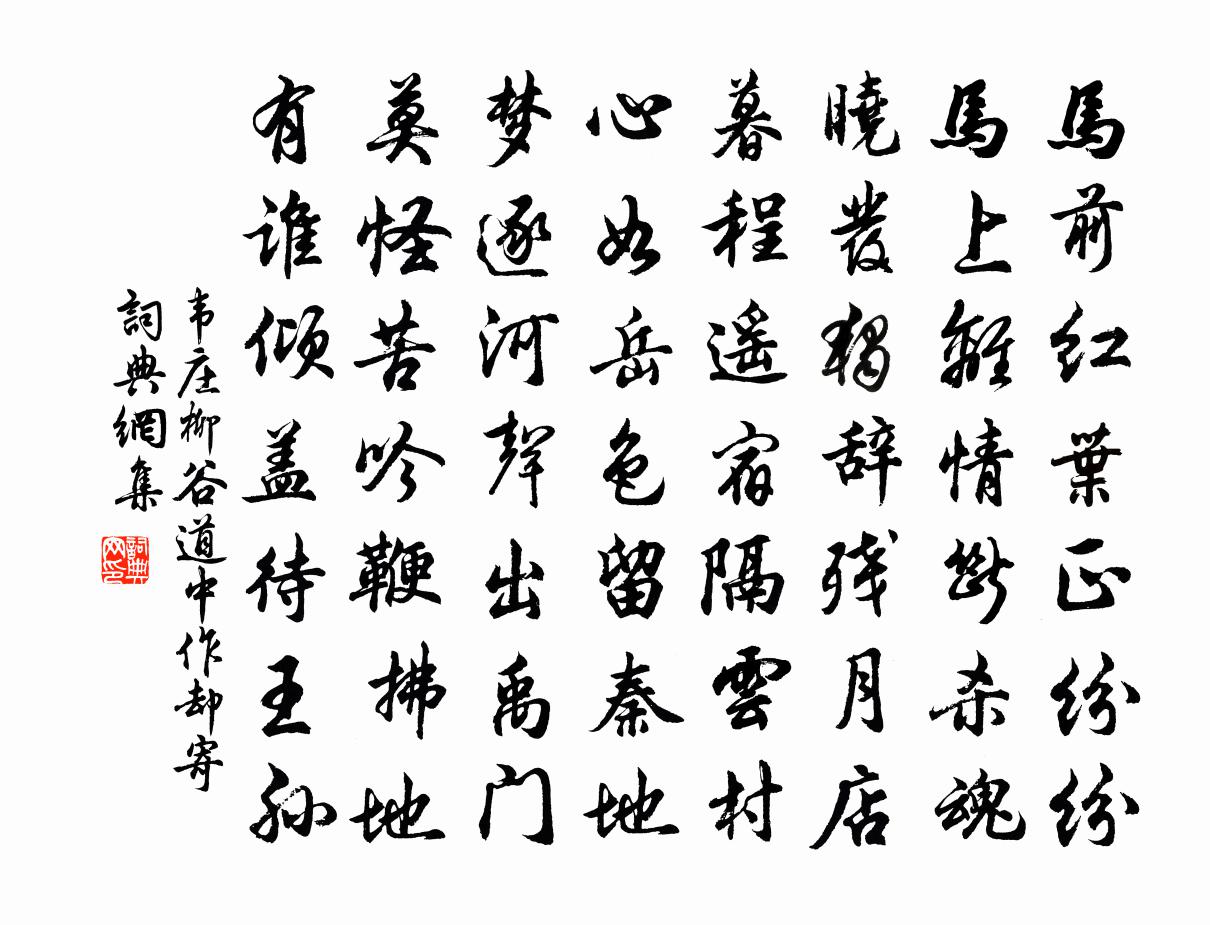 馬前红葉正纷纷
馬上離情斷杀魂
曉發獨辞残月店
暮程遥宿隔雲村
心如岳色留秦地
梦逐河聲出禹门
莫怪苦吟鞭拂地
有谁倾盖待王孙
韦庄柳谷道中作却寄
詞典網集
詞典网印